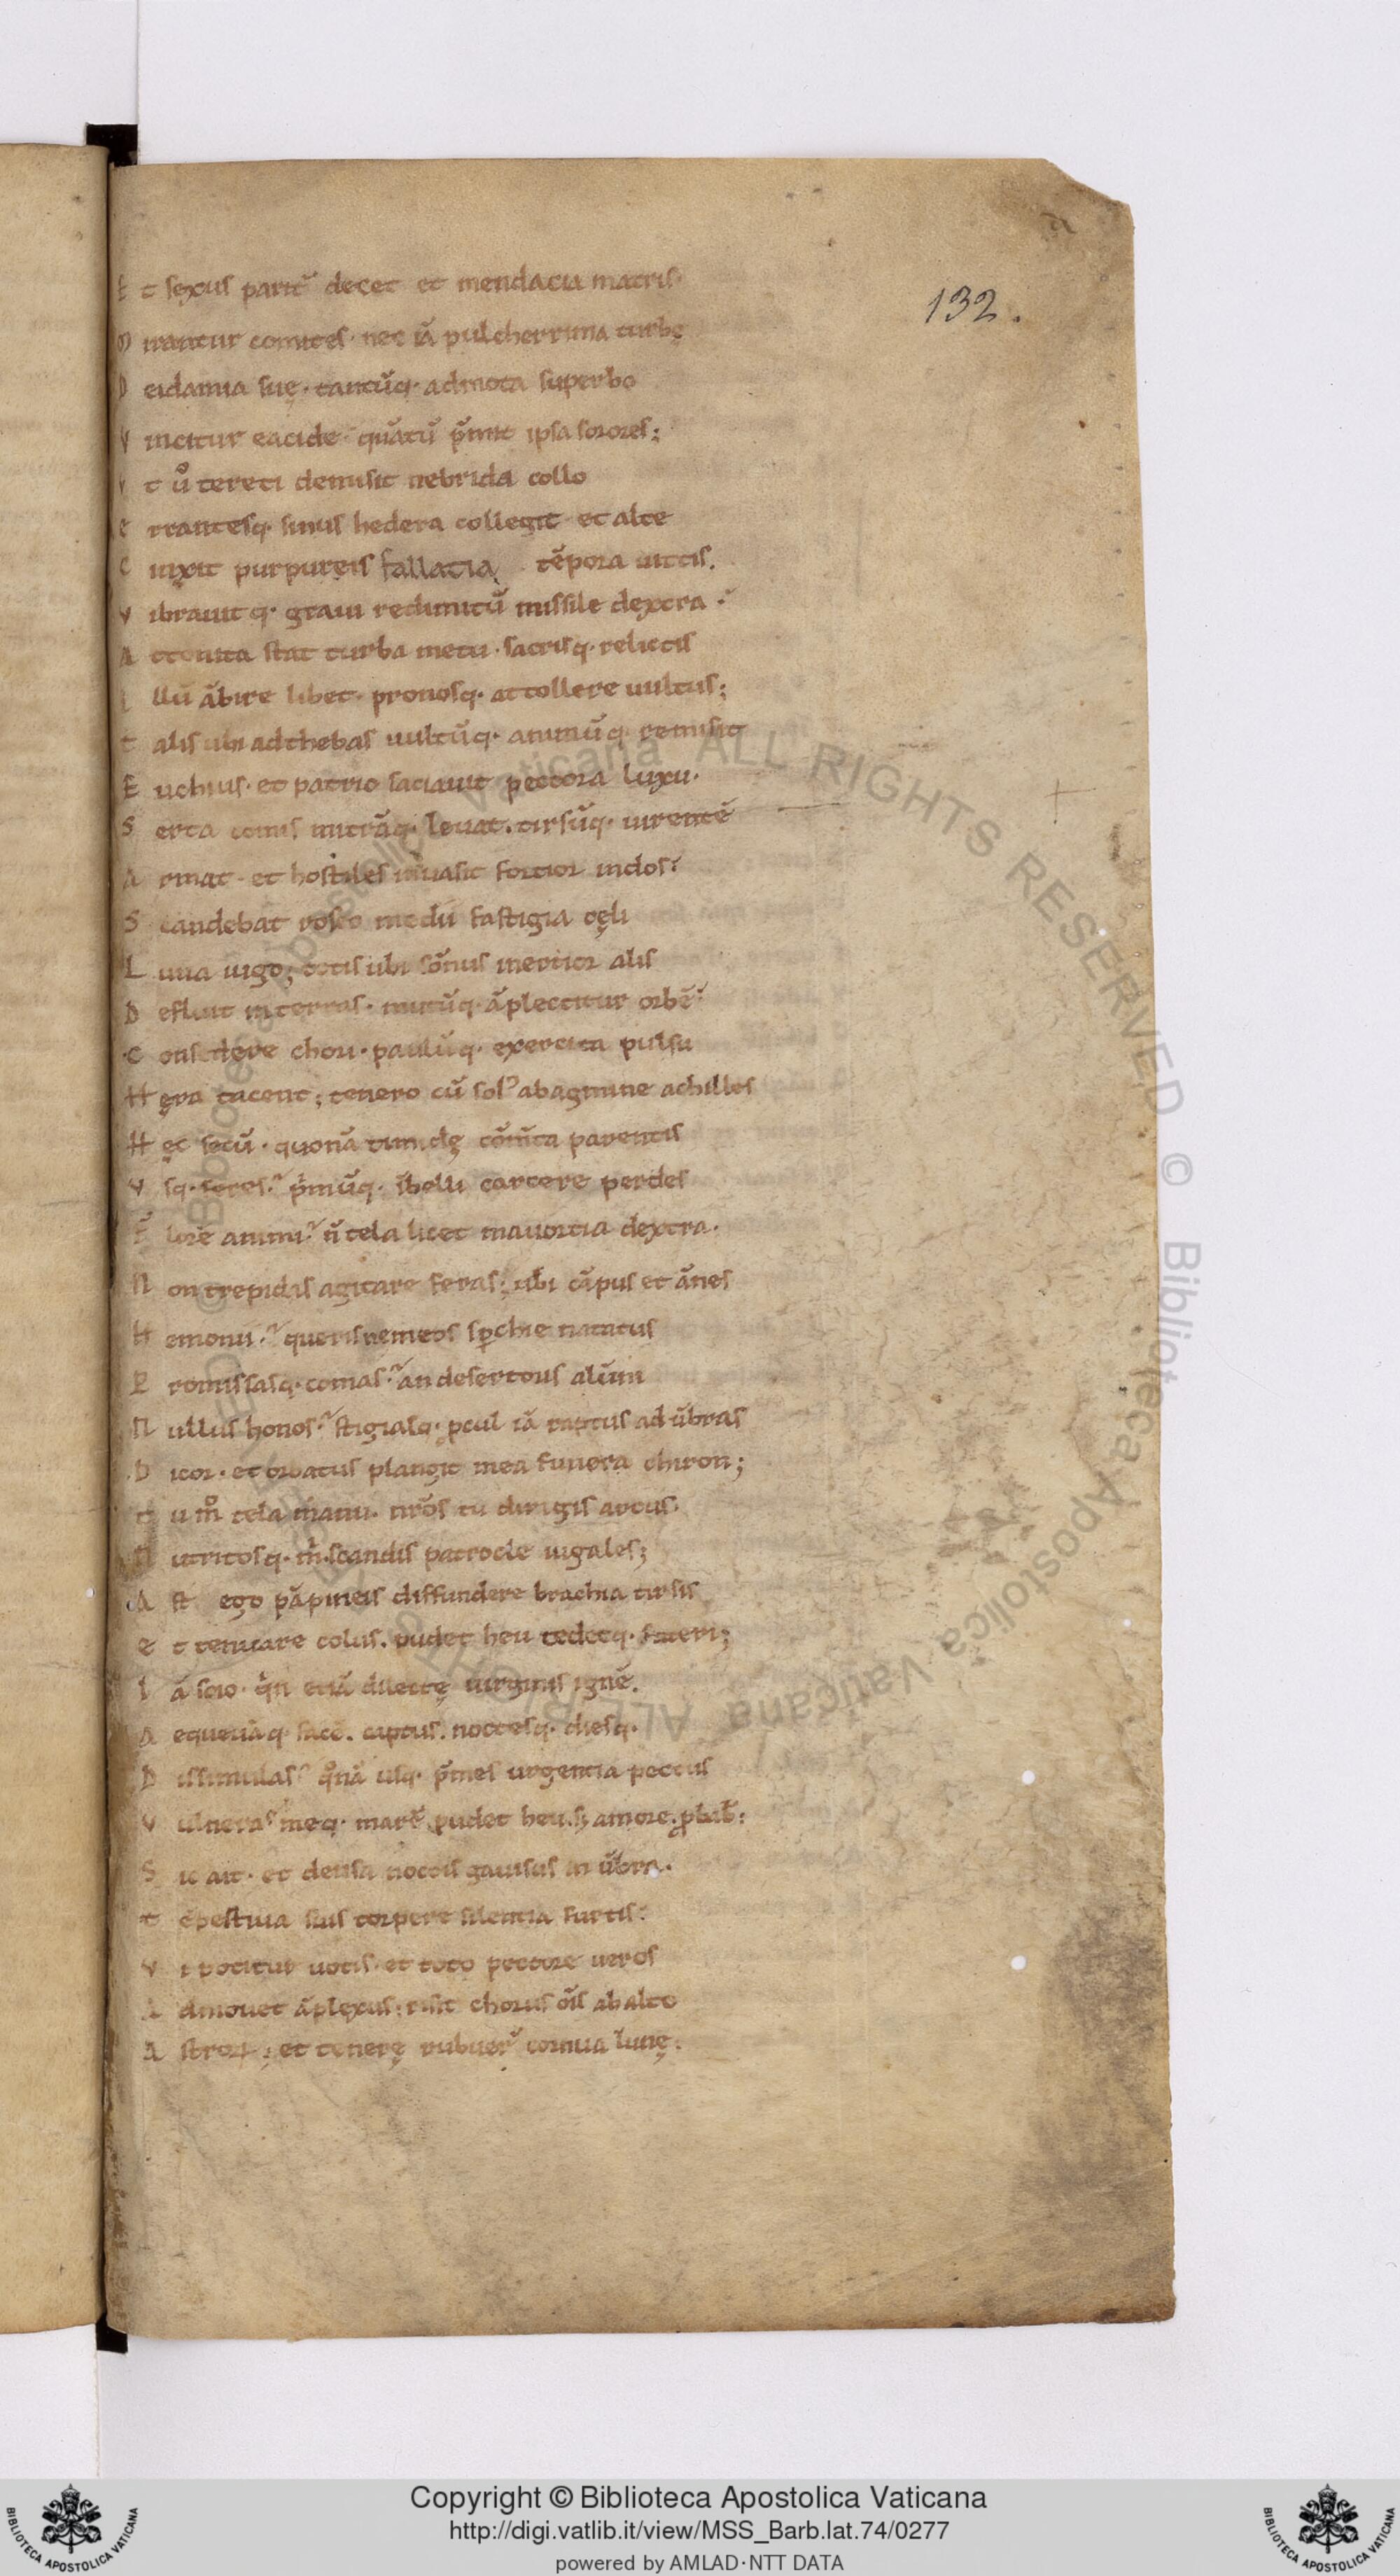 132.
E t sexus parit̃ decet et mendacia matris·
M irantur comites· nec iā pulcherrima turbę
D eidamia suę· tantūq· admota superbo
V incitur eacide· quātū p̄mit ipsa sorores;
V t ů tereti demisit nebrida collo
E rrantesq· sinus hedera collegit· et alte
C inxit purpureis fallatia tēpora uittis.
V ibrauitq· graui redimitū missile dextra·
A ttonita stat turba metu· sacrisq· relictis
I llū ābire libet· pronosq· attollere uultus;
T alis ubi adthebas uultūq· animūq· remisit
E uchius· et patrio saciauit pectora luxu·
S erta comis mitrāq· leuat. tirsūq· uirentē
A rmat· et hostiles inuasit fortior indos:
S candebat roseo medii fastigia cęli
L una iugo; totis ubi sōnus inertior alis
D efluit in terras· mutūq· āplectitur orbē:
C onsedere chori· paulūq· exercita pulsu
H ęra tacent; tenero cū sol' abagmine achilles
H ęc secū· quonā timidę cōm̄ta parentis
V sq· feres? p̄mūq· ībelli carcere perdes
F lorē animi? ñ tela licet mauortia dextra·
N on trepidas agitare feras; ubi cāpus et ānes
H emonii? querisnemeos sp̱chie natatus
P romissasq· comas? an desertoris alūni
N ullus honos? stigiasq· pcul iā raptus ad ūbras
D icor· et orbatus plangit mea funera chiron;
T u m̊ tela manu· nr̄os tu dirigis arcus·
N utritosq· m̍· scandis patrocle iugales;
A st ego pāpineis diffundere brachia tirsis
E t tenuare colus. pudet heu tedetq· fateri;
I ā scio· q̍n etiā dilectę uirginis ignē.
A equeuāq· facē. captus. noctesq· diesq·
D issimulas? q̊nā usq· p̄mes urgentia pectus
V ulnera? meq· marē pudet heu. ꝫ amore. ꝓbab̄:
S ic ait· et densa noctis gauisus in ūbra.
T ēpestiua suis torpere silentia furtis:
V i potitur uotis· et toto pectore ueros
A dmouet āplexus; risit chorus oīs abalto
A stroꝝ; et tenerę rubuer̄ cornua lunę.
Copyright © Biblioteca Apostolica Vaticana
http://digi.vatlib.it/view/MSS_Barb.lat.74/0277
powered by AMLAD·NTT DATA